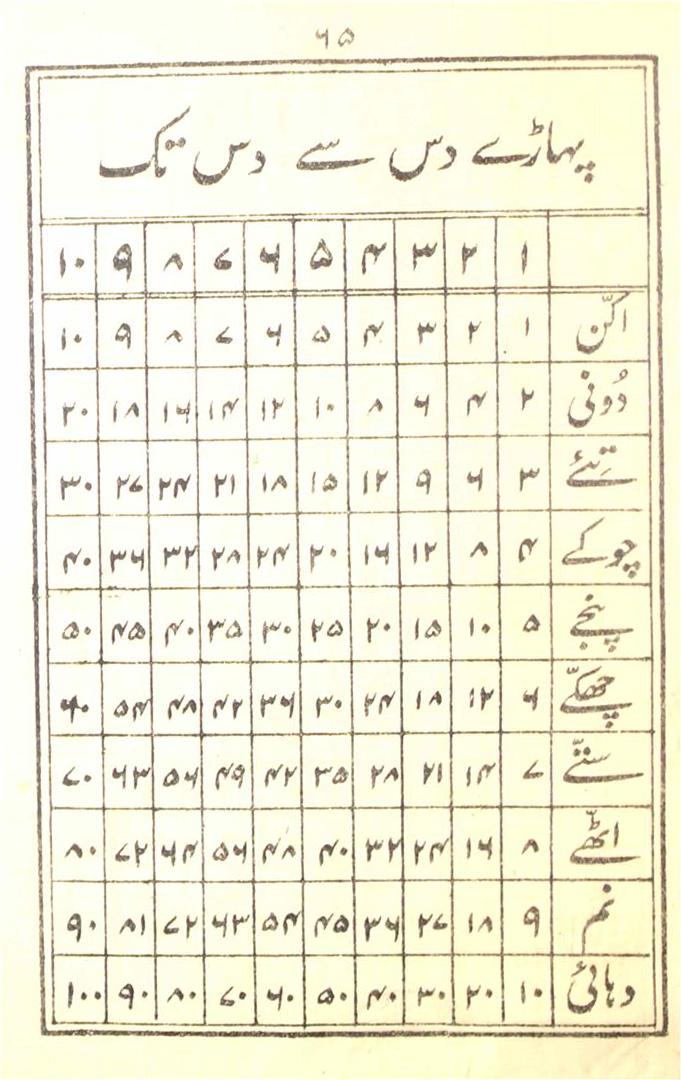 ۶۵
پہاڑے دس سے دس تک
۱ ۲ ۳ ۴ ۵ ۶ ۷ ۸ ۹ ۱۰
اکّن ۱ ۲ ۳ ۴ ۵ ۶ ۷ ۸ ۹ ۱۰
دُونی ۲ ۴ ۶ ۸ ۱۰ ۱۲ ۱۴ ۱۶ ۱۸ ۲۰
تِیئے ۳ ۶ ۹ ۱۲ ۱۵ ۱۸ ۲۱ ۲۴ ۲۷ ۳۰
چوکے ۴ ۸ ۱۲ ۱۶ ۲۰ ۲۴ ۲۸ ۳۲ ۳۶ ۴۰
پنجے ۵ ۱۰ ۱۵ ۲۰ ۲۵ ۳۰ ۳۵ ۴۰ ۴۵ ۵۰
چھکّے ۶ ۱۲ ۱۸ ۲۴ ۳۰ ۳۶ ۴۲ ۴۸ ۵۴ ۶۰
ستّے ۷ ۱۴ ۲۱ ۲۸ ۳۵ ۴۲ ۴۹ ۵۶ ۶۳ ۷۰
اٹھّے ۸ ۱۶ ۲۴ ۳۲ ۴۰ ۴۸ ۵۶ ۶۴ ۷۲ ۸۰
نم ۹ ۱۸ ۲۷ ۳۶ ۴۵ ۵۴ ۶۳ ۷۲ ۸۱ ۹۰
دہائی ۱۰ ۲۰ ۳۰ ۴۰ ۵۰ ۶۰ ۷۰ ۸۰ ۹۰ ۱۰۰